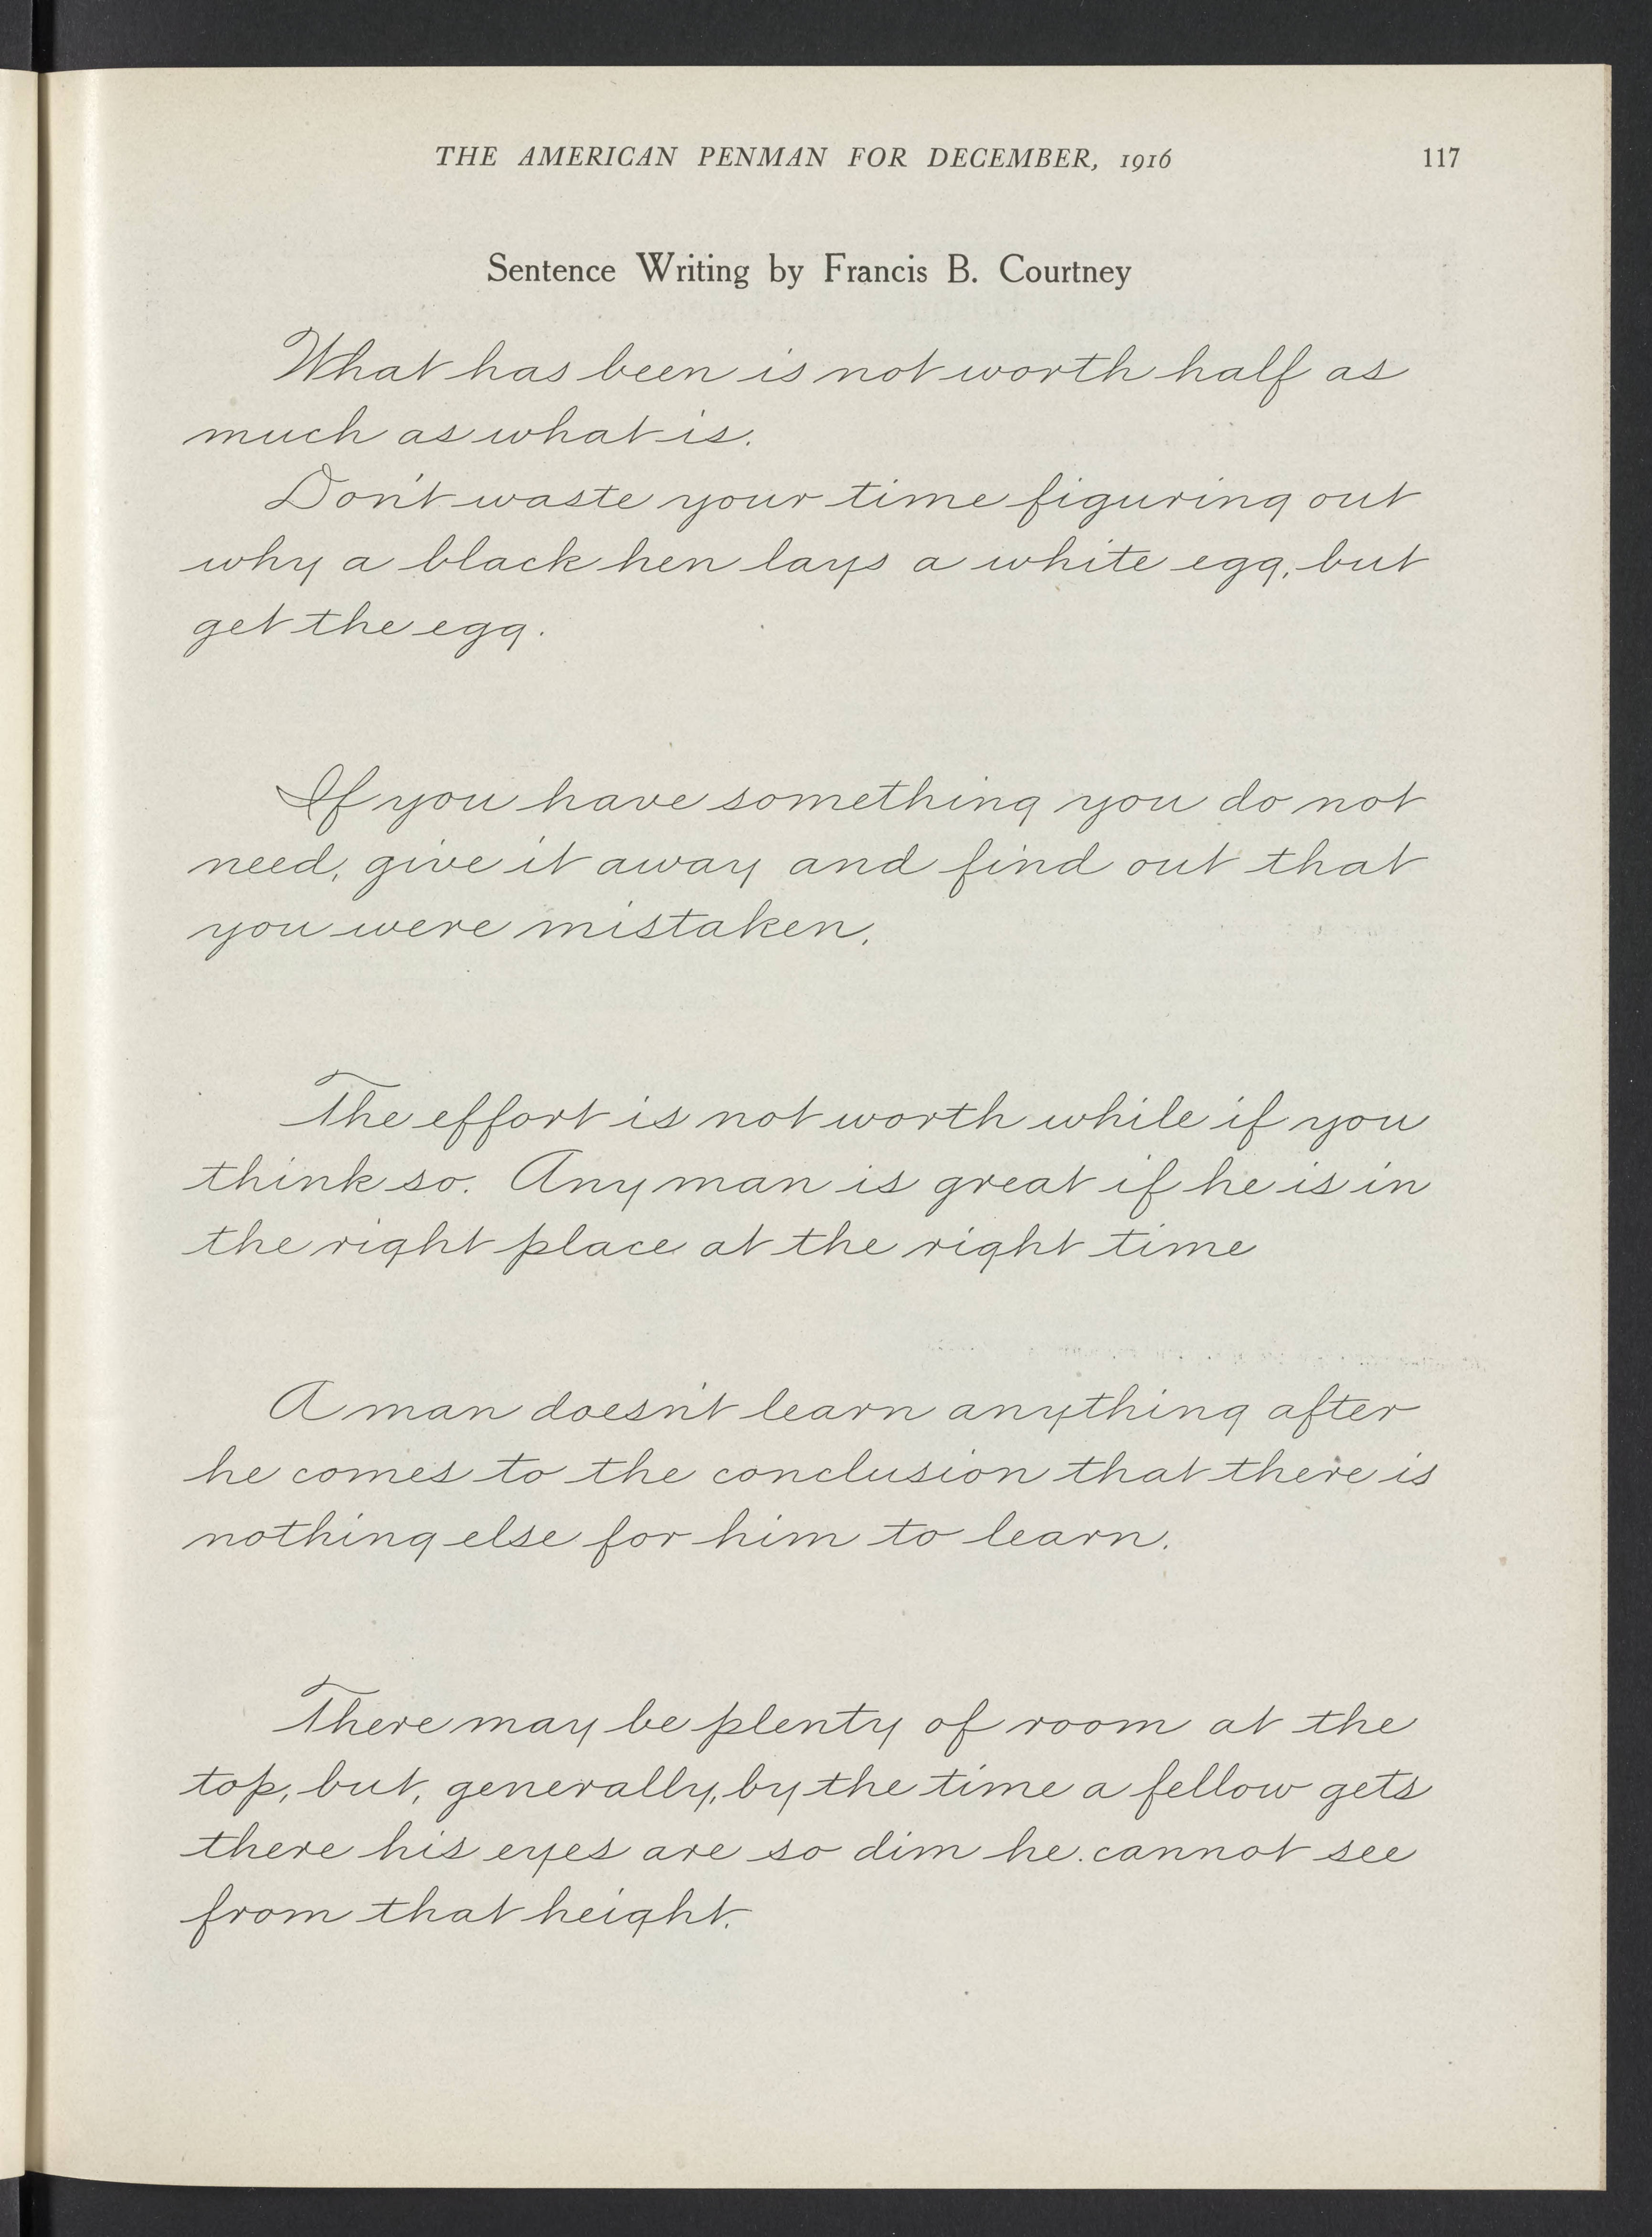 THE AMERICAN PENMAN FOR DECEMBER, 1916 117
Sentence Writing by Francis B. Courtney
What has been is not worth half as
much as what is.
Don't waste your time figuring out
why a black hen lays a white egg, but
get the egg.
If you have something you do not
need, give it away and find out that
you were mistaken.
The effort is not worth while if you
think so. Any man is great if he is in
the right place at the right time
A man doesn't learn anything after
he comes to the conclusion that there is
nothing else for him to learn.
There may be plenty of room at the
top, but, generally, by the time a fellow gets
there his eyes are so dim he cannot see
from that height.